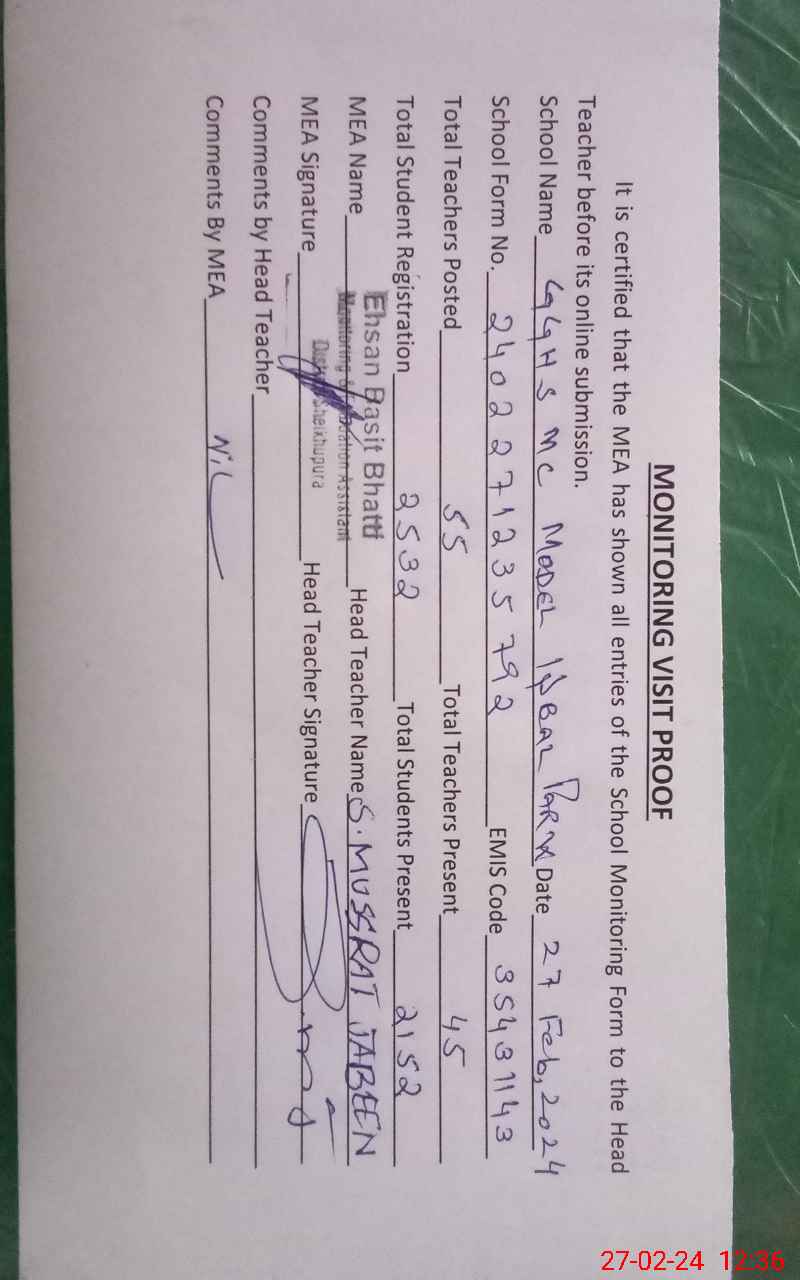 MONITORING VISIT PROOF
It is certified that the MEA has shown all entries of the School Monitoring Form to the Head
Teacher before its online submission.
School Name GGHS MC MODEL IQBAL PARK Date 27 Feb, 2024
School Form No. 2402271235792 EMIS Code 35431143
Total Teachers Posted 55 Total Teachers Present 45
Total Student Registration 2532 Total Students Present 2152
Ehsan Basit Bhatti
MEA Name Head Teacher Name S. MUSSRAT JABEEN
Monitoring & Assistant
Sheikhupura
MEA Signature Head Teacher Signature
Comments by Head Teacher
Comments By MEA Nil
27-02-24 12:36